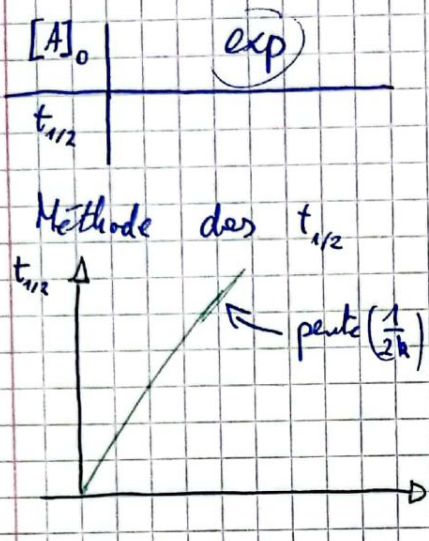 [A]₀ exp
t₁/₂
Méthode des t₁/₂
t₁/₂
pente (1/2k)